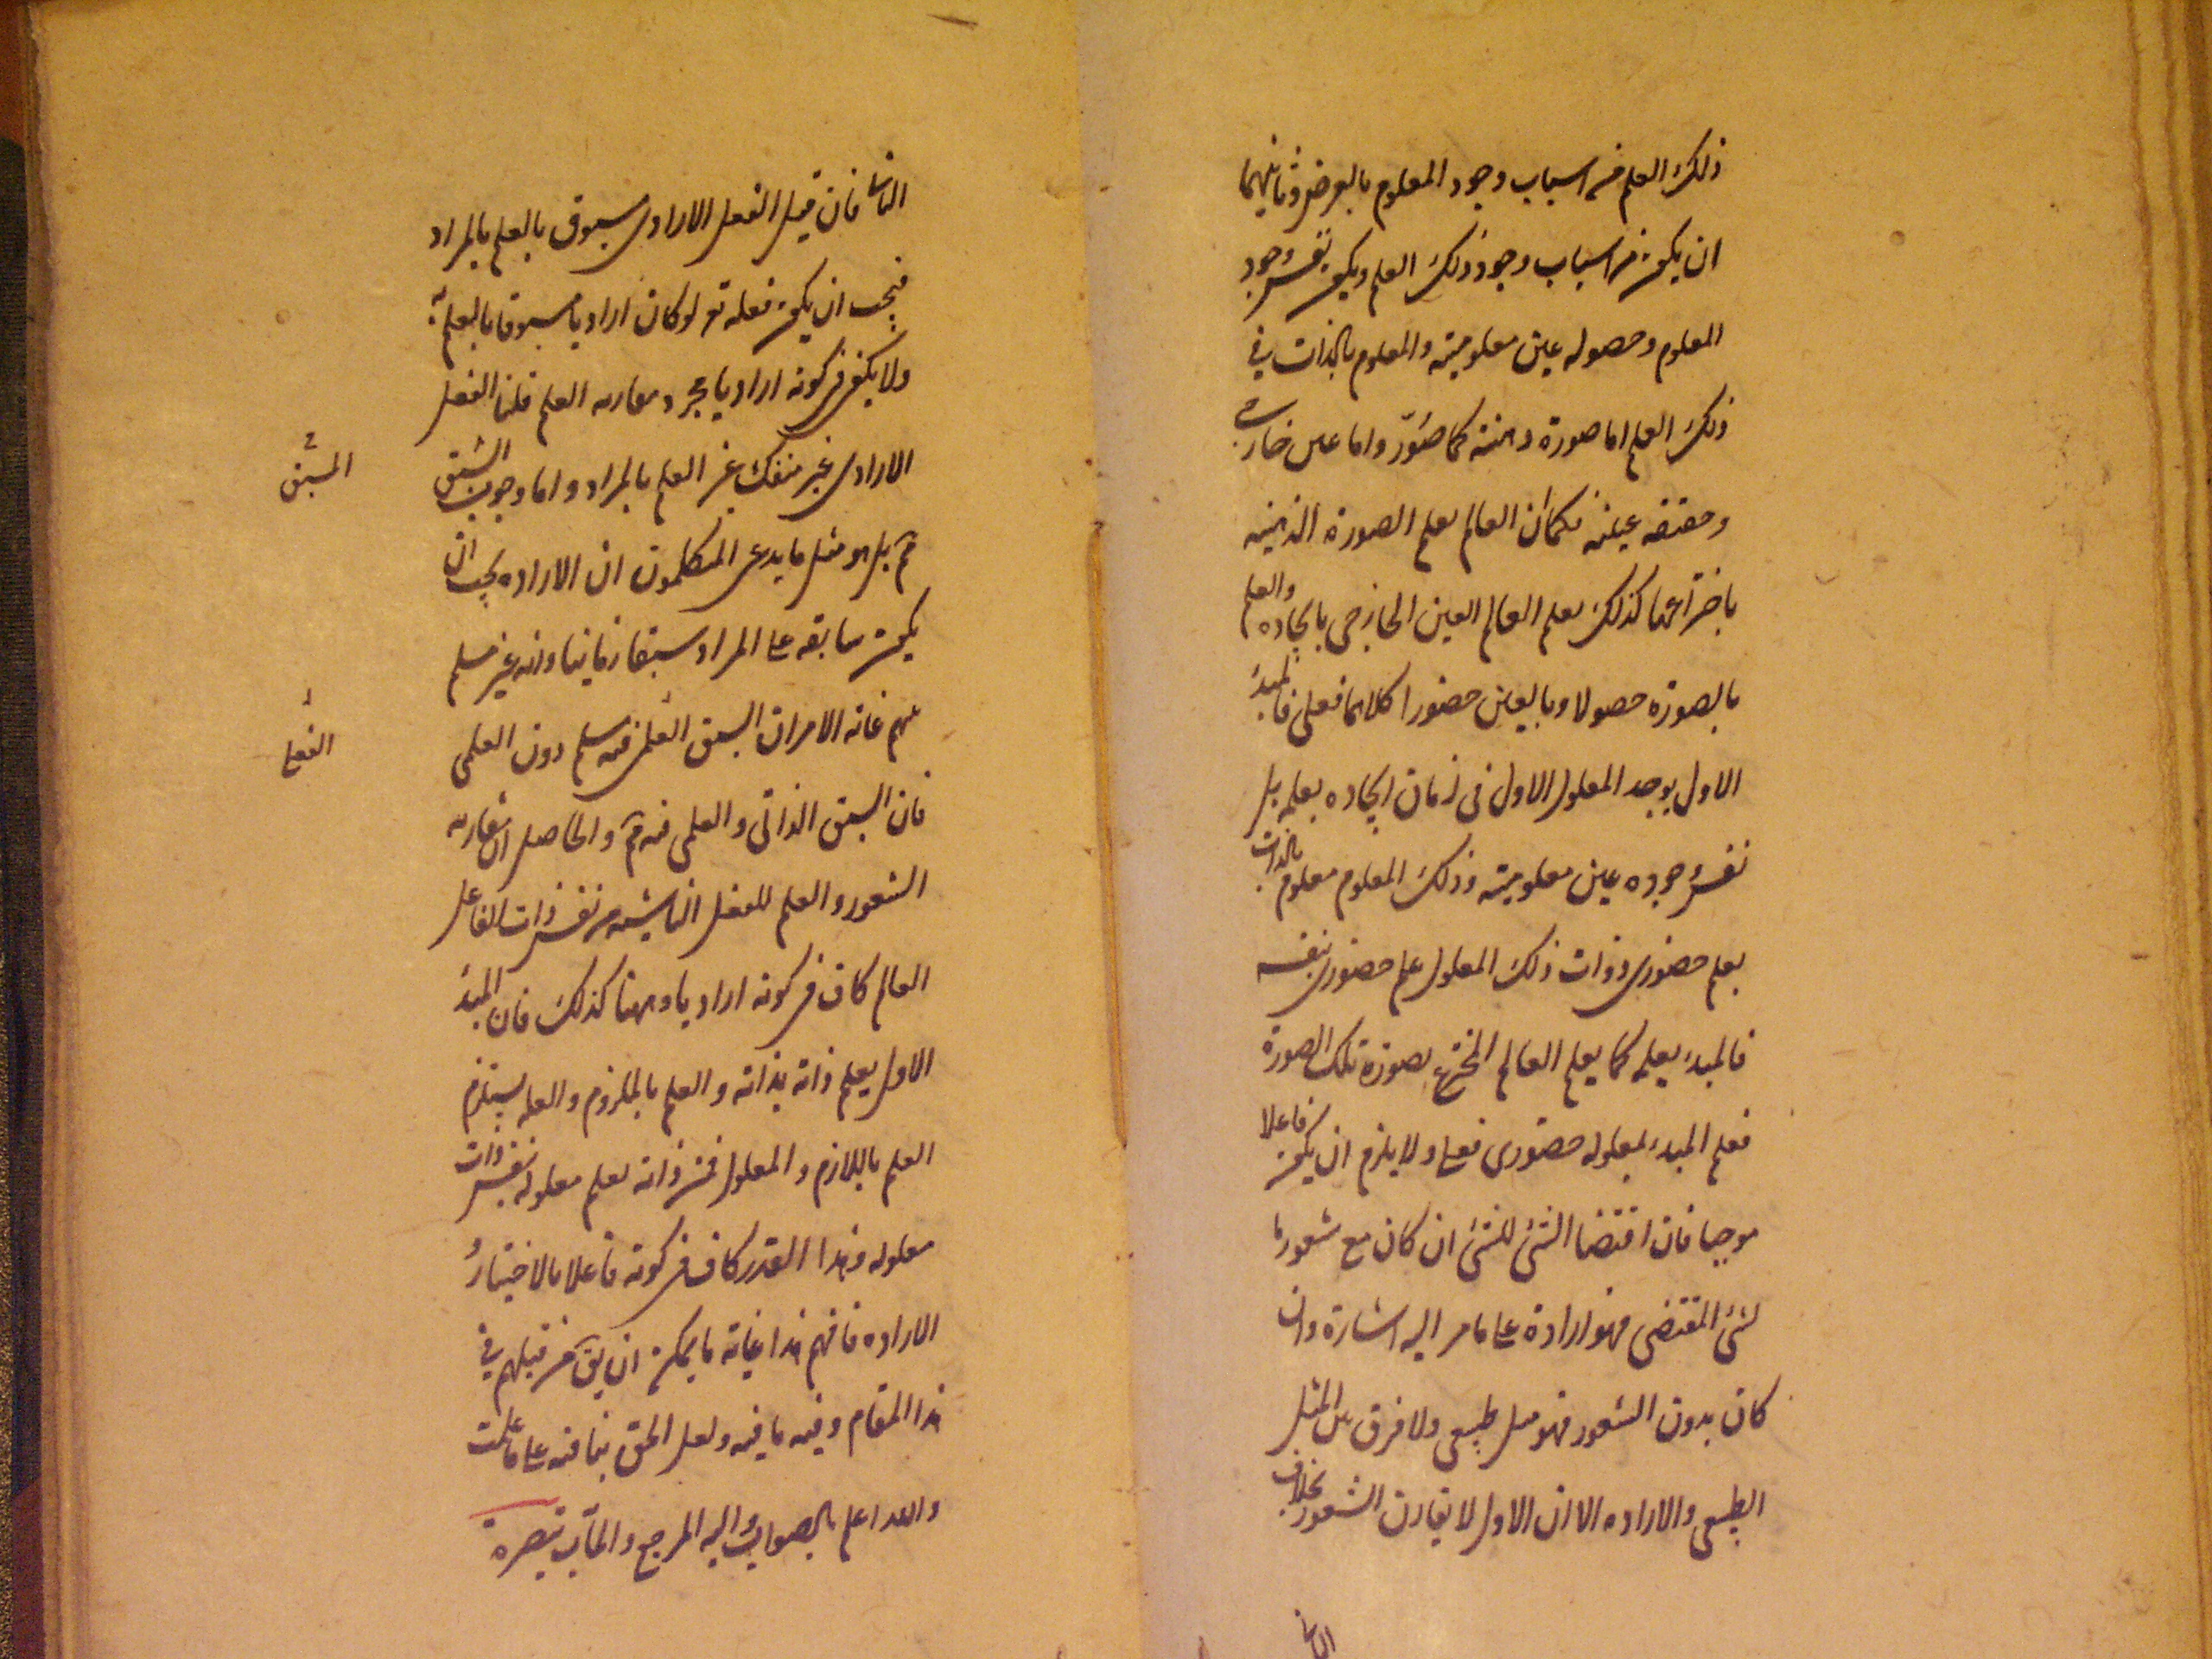 ذلك العلم من اسباب وجود المعلوم بالعرض وثانيهما
ان يكون من اسباب وجود ذلك العلم ويكون نفس وجود
المعلوم وحصوله عين معلوميته والمعلوم بالذات في
ذلك العلم اما صورة ذهنية كما صور واما عين خارجي
وحقيقة عينية فكما ان العالم يعلم الصورة الذهنية
باختراعها كذلك يعلم العالم العين الخارجي بايجاده والعلم
بالصورة حصولا وبالعين حضورا كلاهما فعلي فالمبدء
الاول يوجد المعلول الاول في زمان ايجاده يعلمه بل
نفس وجوده عين معلوميته وذلك المعلوم معلوم بالذات
بعلم حضوري وذات ذلك المعلول علم حضوري بنفسه
فالمبدء يعلمه كما يعلم العالم المخترع لصورة تلك الصورة
فعلم المبدء بمعلوله حضوري فعلي ولا يلزم ان يكون فاعلا
موجبا فان اقتضا الشئ للشئ ان كان مع شعور ما
لشئ المقتضي فهو ارادة على ما مر اليه اشارة وان
كان بدون الشعور فهو ميل طبيعي ولا فرق بين الميل
الطبيعي والاراده الا ان الاول لا يقارن الشعور بخلاف
الثاني
الثاني فان قيل الفعل الارادي مسبوق بالعلم بالمراد
فيجب ان يكون فعله تع لو كان اراديا مسبوقا بالعلم به
ولا يكفي في كونه اراديا مجرد مقارنه العلم قلنا الفعل
الارادي غير منفك عن العلم بالمراد واما وجوب السبق
السبق
فم بل هو مثل ما يدعي المتكلمون ان الاراده يجب ان
يكون سابقه على المراد سبقا زمانيا وانه غير مسلم
منهم غاية الامر ان السبق العلي فيه مسلم دون العلمي
الفعلي
فان السبق الذاتي والعلمي فيه مم والحاصل ان مقارنه
الشعور والعلم للفعل الناشيه من نفس ذات الفاعل
العالم كاف في كونه اراديا وههنا كذلك فان المبدء
الاول يعلم ذاته بذاته والعلم بالملزوم والعله يستلزم
العلم باللازم والمعلول فمن ذاته يعلم معلوله بنفس ذات
معلوله وهذا القدر كاف في كونه فاعلا بالاختيار و
الاراده فافهم هذا غاية ما يمكن ان يق من قبلهم في
هذا المقام وفيه ما فيه ولعل الحق ينافيه على ما علمت
والله اعلم بالصواب واليه المرجع والمآب تبصرة